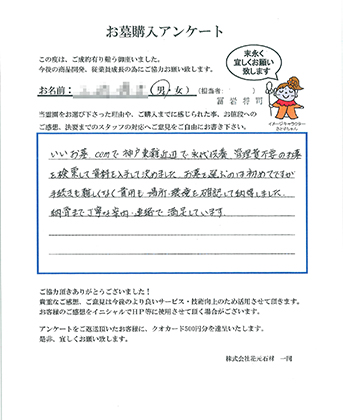 お墓購入アンケート
この度は、ご成約有り難う御座いました。
今後の商品開発、従業員成長の為にご協力お願い致します。
末永く
宜しくお願い
致します
お名前: (男・女) (担当者:
当霊園をお選び下さった理由や、ご購入までに感じられた事、お値段への
ご感想、決算までのスタッフの対応へご意見をご自由にお書き下さい。
イメージキャラクター
いいお墓.comで神戸東灘近辺で永代供養 管理費不要のお墓
を検索して資料を入手して決めました。お墓を選ぶのは初めてですが
手続きも難しくなく費用も場所・環境を確認して納得しました。
納骨まで丁寧な案内・連絡で満足しています。
ご協力頂きありがとうございました!
貴重なご感想、ご意見は今後のより良いサービス・技術向上のため活用させて頂きます。
お客様のご感想をイニシャルでHP等に使用させて頂く場合がございます。
アンケートをご返送頂いたお客様に、クオカード500円分を進呈いたします。
是非、宜しくお願い致します。
株式会社花元石材 一同